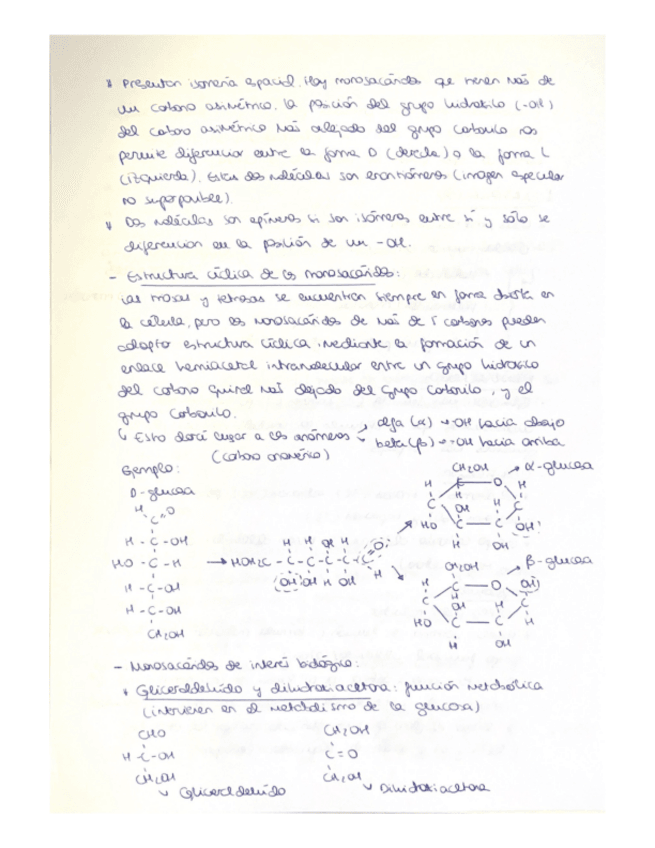 * Presentan isomería espacial. Hay monosacáridos que tienen más de
un carbono asimétrico. La posición del grupo hidroxilo (-OH)
del carbono asimétrico más alejado del grupo carbonilo nos
permite diferenciar entre la forma D (derecha) o la forma L
(izquierda). Estas dos moléculas son enantiómeros (imagen especular
no superponible).
* Dos moléculas son epímeros si son isómeros entre sí y sólo se
diferencian en la posición de un -OH.
- Estructura cíclica de los monosacáridos:
Las triosas y tetrosas se encuentran siempre en forma abierta en
la célula, pero los monosacáridos de más de 5 carbonos pueden
adoptar estructura cíclica mediante la formación de un
enlace hemiacetal intramolecular entre un grupo hidroxilo
del carbono quiral más alejado del grupo carbonilo, y el
grupo carbonilo.
↳ Esto dará lugar a los anómeros
(carbono anomérico)
alfa (α) → -OH hacia abajo
beta (β) → -OH hacia arriba
Ejemplo:
D-glucosa
H O
C
H - C - OH
HO - C - H
H - C - OH
H - C - OH
CH₂OH
H H OH H O
→ HOH₂C - C - C - C - C - C
OH OH H OH H
CH₂OH → α-glucosa
H C O H
C H C
OH H
HO C C OH
H OH
CH₂OH → β-glucosa
H C O OH
C H C
OH H
HO C C H
H OH
- Monosacáridos de interés biológico:
* Gliceraldehído y dihidroxiacetona: función metabólica
(intervienen en el metabolismo de la glucosa)
CHO CH₂OH
H - C - OH C = O
CH₂OH CH₂OH
↳ Gliceraldehído ↳ Dihidroxiacetona